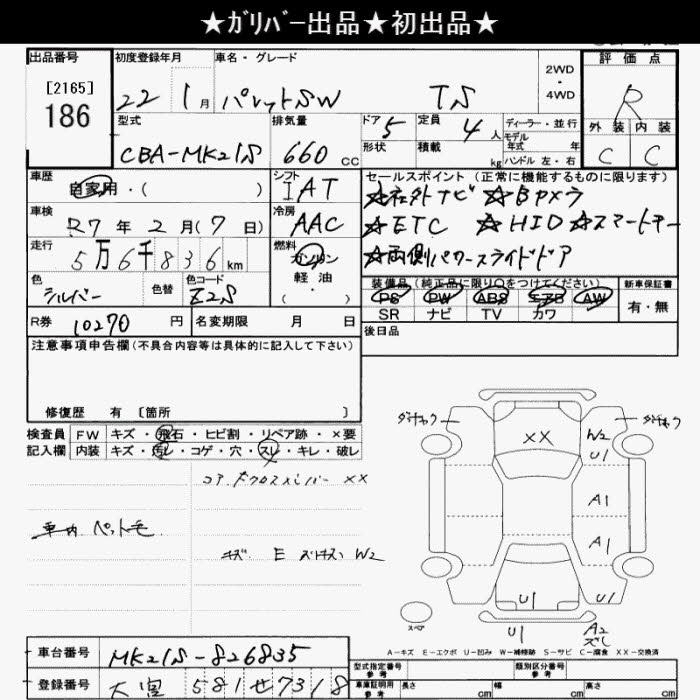 ★ｶﾞﾘﾊﾞｰ出品★初出品★
出品番号 初度登録年月 車名・グレード 評価点
[2165]
186
22 1月 パレットSW TS
2WD・4WD
R
型式 排気量 ドア 定員 ディーラー・並行
CBA-MK21S 660 CC 5 4人
モデル年式 年
形状 積載 kg ハンドル 左・右
外装 内装
C C
車歴 シフト セールスポイント (正常に機能するものに限ります)
自家用・( ) IAT
★社外ナビ ★Bカメラ
車検 冷房
R7年2月(7日) AAC
★ETC ★HID ★スマートキー
走行 燃料
5万6千836km ガソリン・軽油・( )
★両側パワースライドドア
色 色替 色コード
シルバー Z2S
装備品 (純正品に限り○をつけてください) 新車保証書
PS PW ABS エアB AW 有・無
SR ナビ TV カワ
R券 10270円 名変期限 月 日
後日品
注意事項申告欄 (不具合内容等は具体的に記入して下さい)
修復歴 有 [箇所 ]
検査員記入欄 FW キズ・飛石・ヒビ割・リペア跡・×要
内装 キズ・汚レ・コゲ・穴・スレ・キレ・破レ
コアサポ クロスメンバー XX
車内 ペット毛
キズ E W2
XX
W2
U1
A1
A1
U1 U1
U1
A2
ズレ
スペア
A-キズ E-エクボ U-凹み W-補修跡 S-サビ C-腐食 XX-交換済
車台番号 MK21S-826835
型式指定番号 参考 類別区分番号 参考
登録番号 大宮 581せ7318
車庫証明用 参考 長さ cm 幅 cm 高さ cm